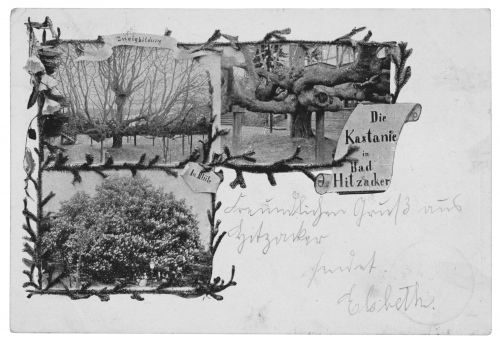 Zweigbildung
Die
Kastanie
in
Bad
Hitzacker
In Blüte
Freundlichen Gruß aus
Hitzacker
sendet
Elsbeth.